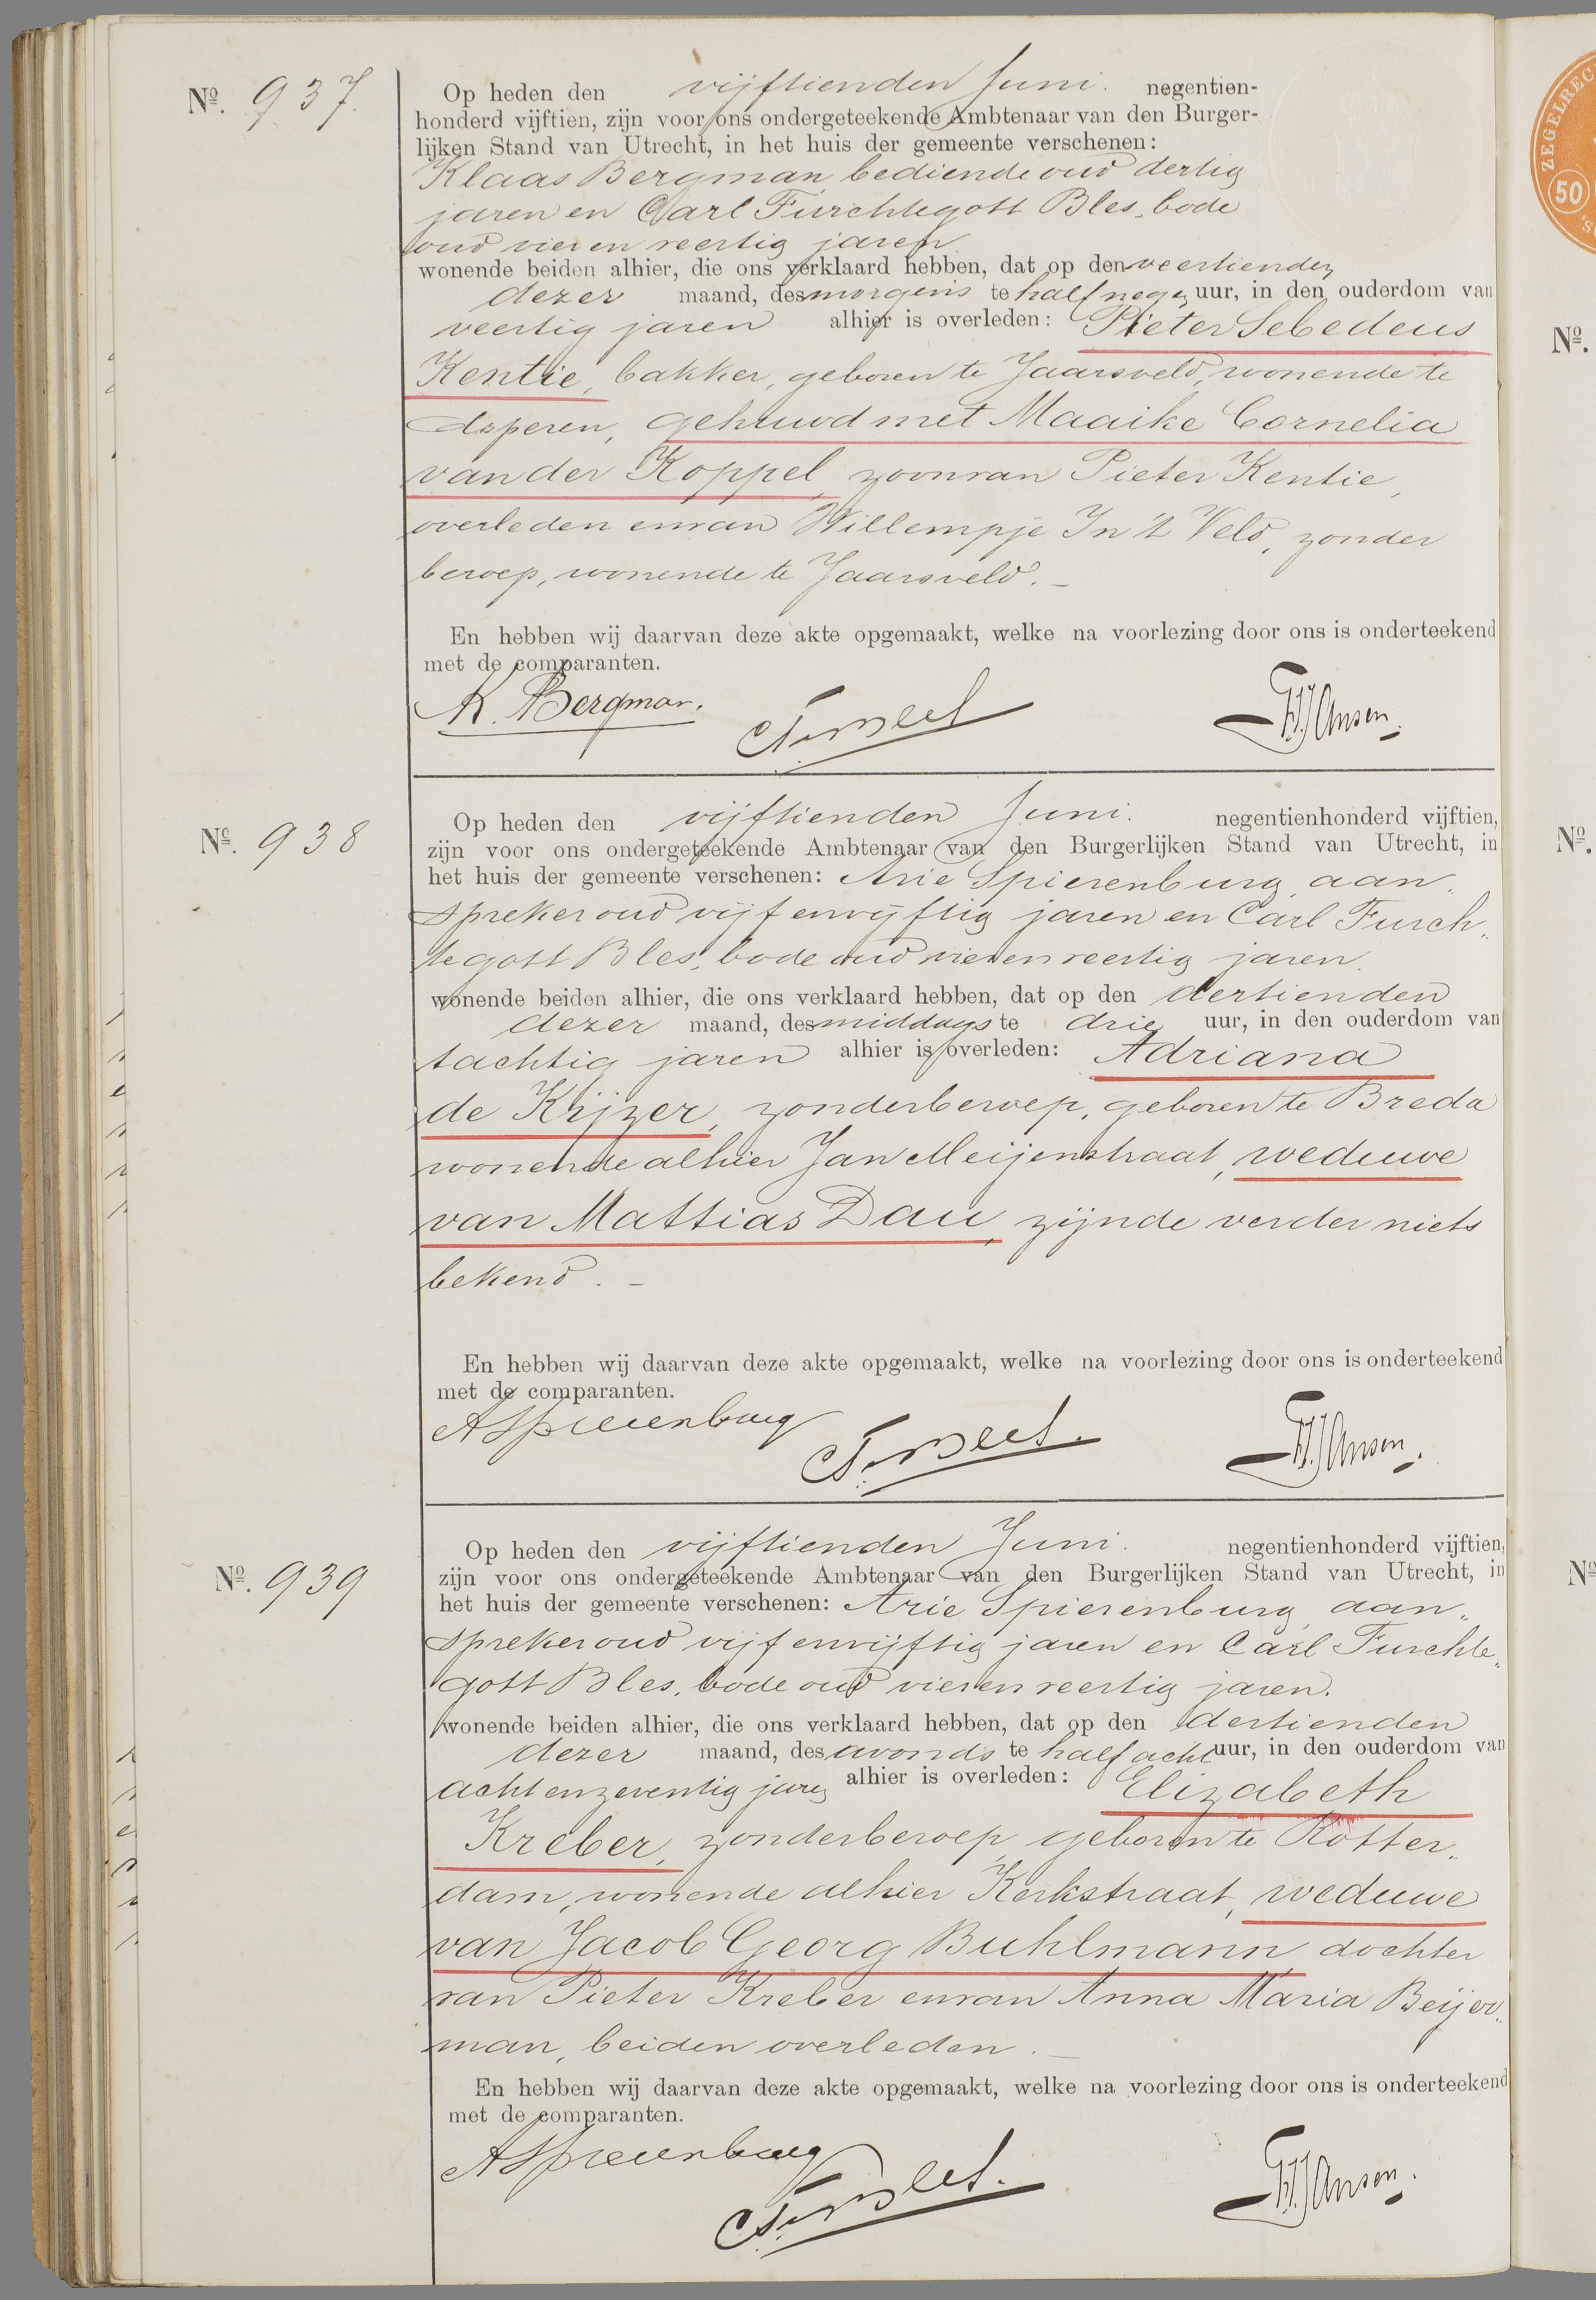 No. 937.
Op heden den vijftienden Juni. negentien-
honderd vijftien, zijn voor ons ondergeteekende Ambtenaar van den Burger-
lijken Stand van Utrecht, in het huis der gemeente verschenen:
Klaas Bergman, bediende oud dertig
jaren en Carl Furchtegott Bles, bode
oud vier en veertig jaren
wonende beiden alhier, die ons verklaard hebben, dat op den veertienden
dezer maand, des morgens te half negen uur, in den ouderdom van
veertig jaren alhier is overleden: Pieter Sebedeus
Kentie, bakker, geboren te Jaarsveld, wonende te
Asperen, gehuwd met Maaike Cornelia
van der Koppel, zoon van Pieter Kentie,
overleden en van Willempje In 't Veld, zonder
beroep, wonende te Jaarsveld. -
En hebben wij daarvan deze akte opgemaakt, welke na voorlezing door ons is onderteekend
met de comparanten.
K. Bergman. C.F. Bles HJJansen.
No. 938
Op heden den vijftienden Juni. negentienhonderd vijftien,
zijn voor ons ondergeteekende Ambtenaar van den Burgerlijken Stand van Utrecht, in
het huis der gemeente verschenen: Arie Spierenburg, aan„
spreker oud vijf en vijftig jaren en Carl Furch„
tegott Bles, bode oud vier en veertig jaren.
wonende beiden alhier, die ons verklaard hebben, dat op den dertienden
dezer maand, des middags te drie uur, in den ouderdom van
tachtig jaren alhier is overleden: Adriana
de Krijzer, zonder beroep, geboren te Breda
wonende alhier Jan Meijenstraat, weduwe
van Mattias Dau, zijnde verder niets
bekend. -
En hebben wij daarvan deze akte opgemaakt, welke na voorlezing door ons is onderteekend
met de comparanten.
ASpierenburg C.F. Bles. HJJansen.
No. 939
Op heden den vijftienden Juni. negentienhonderd vijftien,
zijn voor ons ondergeteekende Ambtenaar van den Burgerlijken Stand van Utrecht, in
het huis der gemeente verschenen: Arie Spierenburg, aan„
spreker oud vijf en vijftig jaren en Carl Furchte„
gott Bles, bode oud vier en veertig jaren.
wonende beiden alhier, die ons verklaard hebben, dat op den dertienden
dezer maand, des avonds te half acht uur, in den ouderdom van
acht en zeventig jaren alhier is overleden: Elizabeth
Kreber, zonder beroep, geboren te Rotter„
dam, wonende alhier Kerkstraat, weduwe
van Jacob Georg Buhlmann dochter
van Pieter Kreber en van Anna Maria Beijer„
man, beiden overleden. -
En hebben wij daarvan deze akte opgemaakt, welke na voorlezing door ons is onderteekend
met de comparanten.
ASpierenburg C.F. Bles. HJJansen.
ZEGELRECHT
50
No.
No.
No